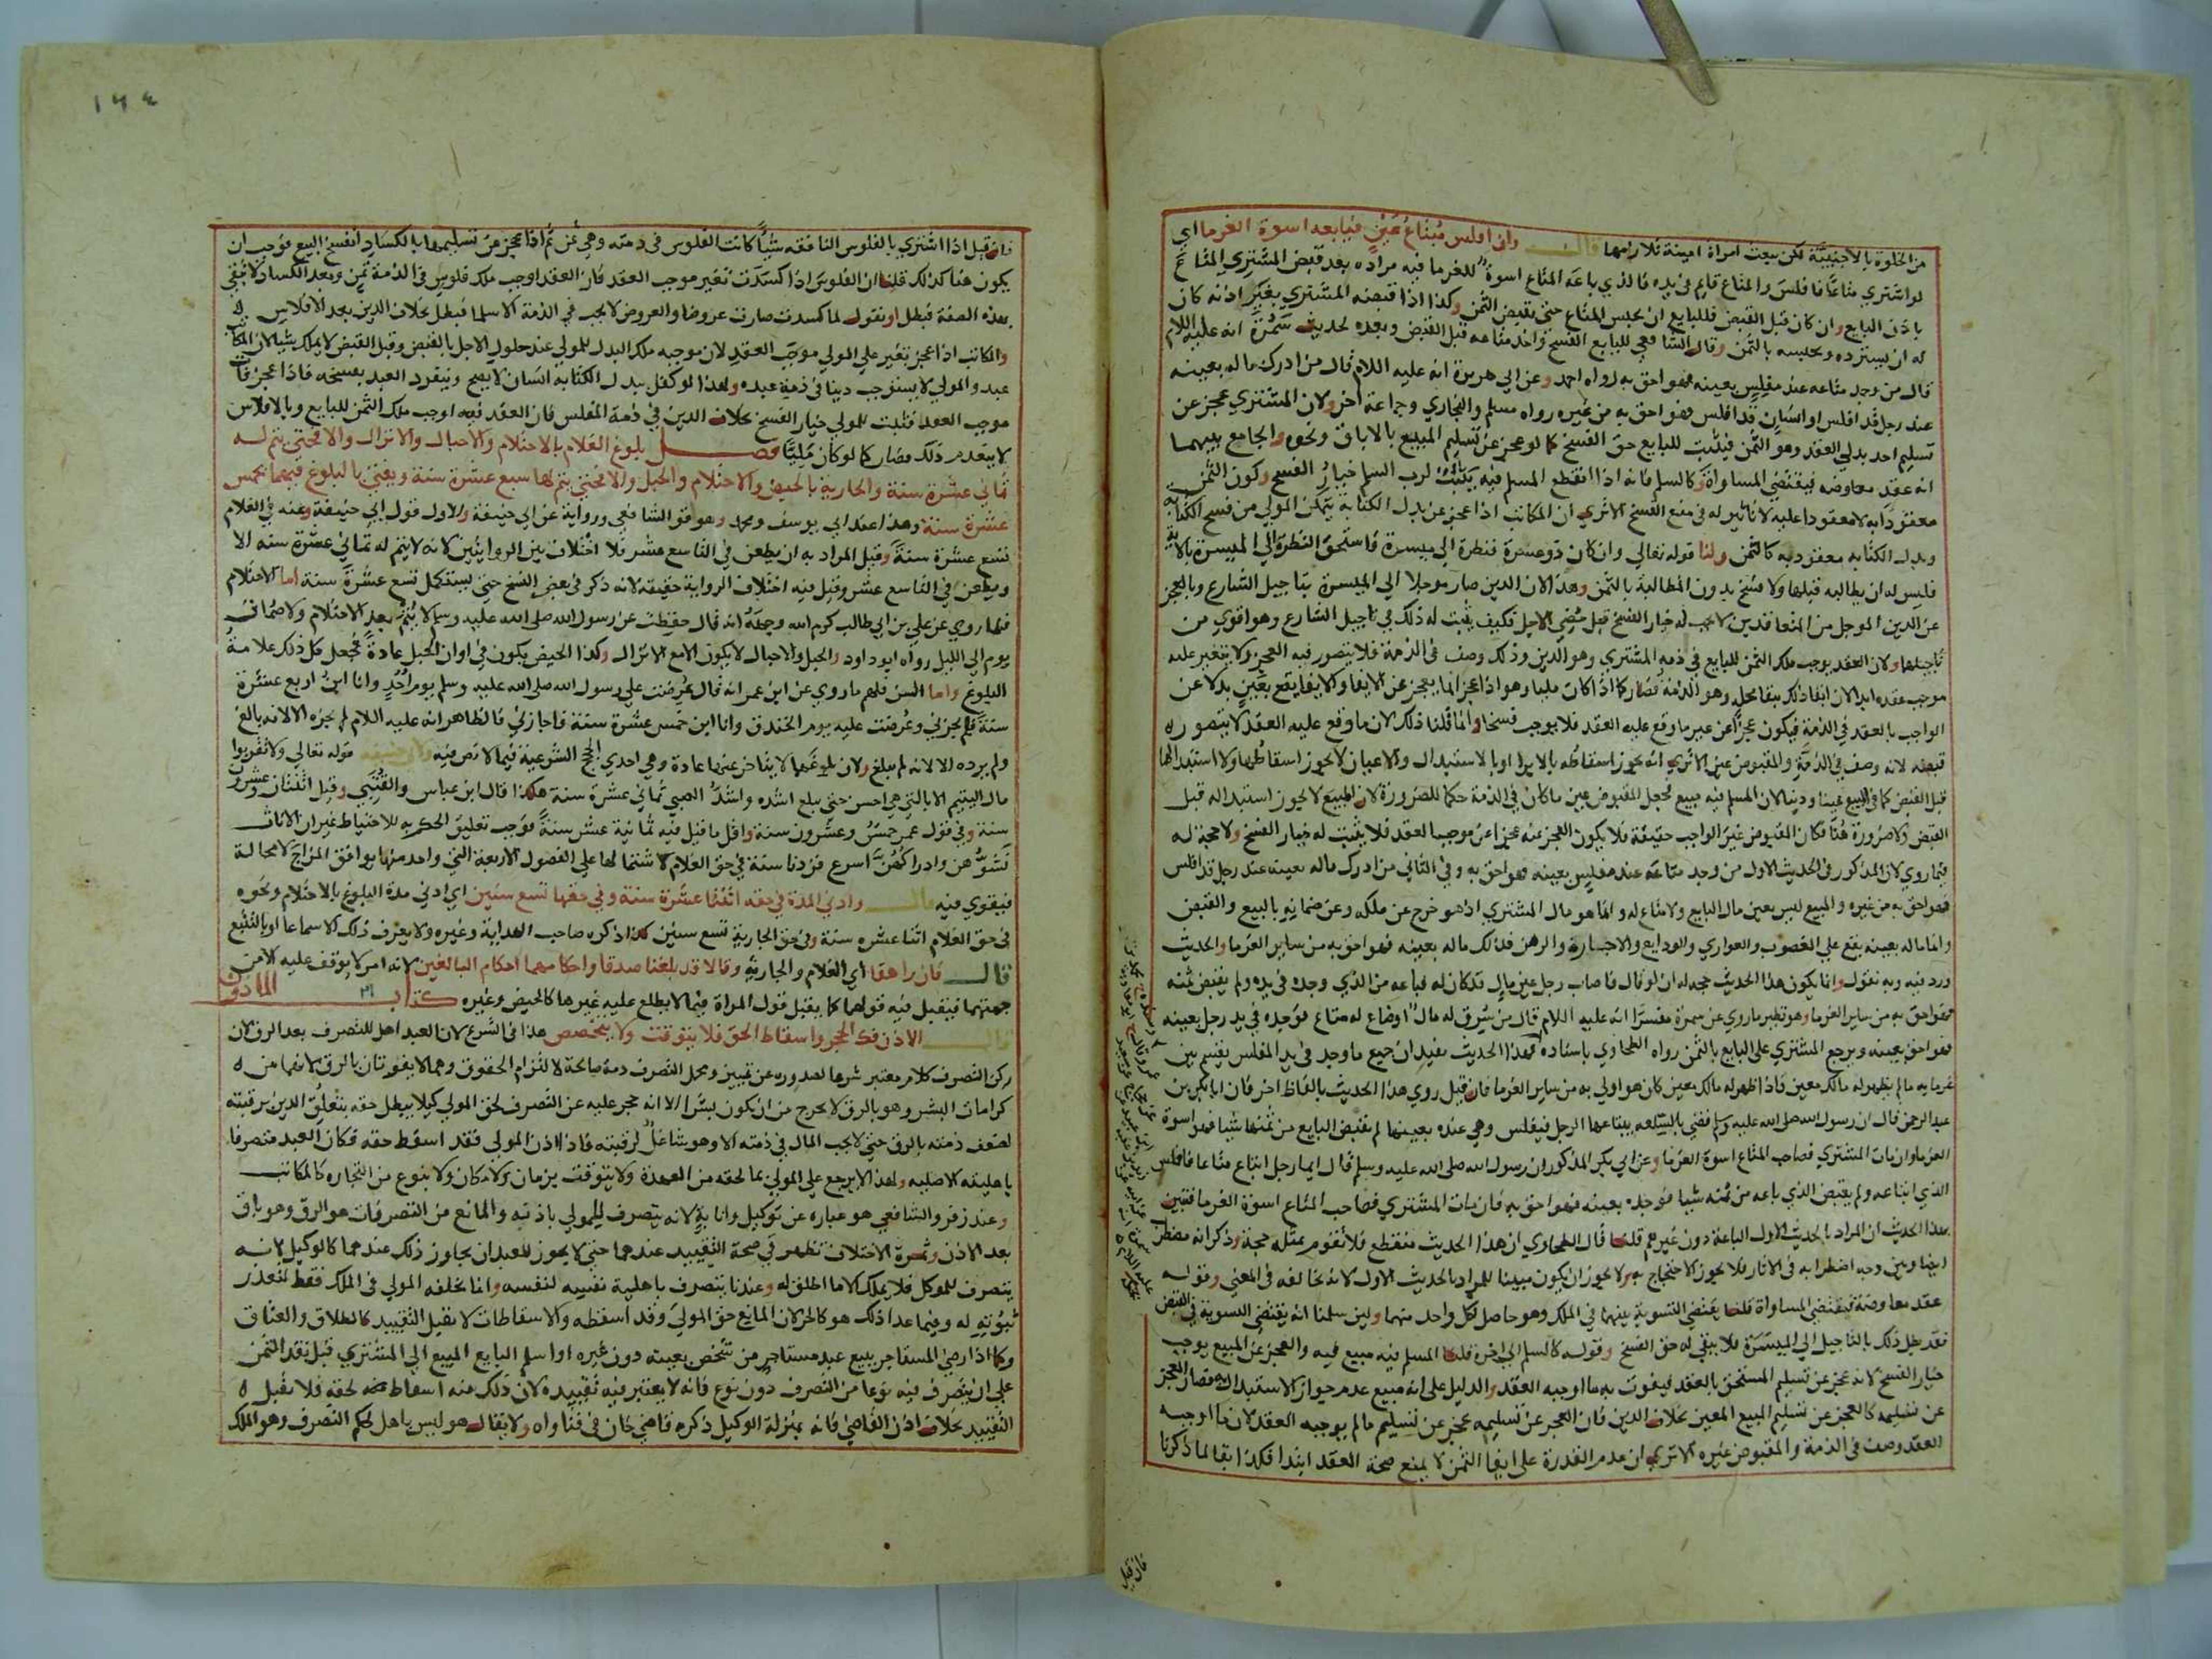 من الخلوة بالاجنبية لكن يبعث امراة امينة تلازمها قال وان افلس مبتاع عين فبايعه اسوة الغرما اي
لو اشتري متاعا فافلس والمتاع قايم في يده فالذي باعه المتاع اسوة للغرما فيه مراده بعد قبض المشتري المتاع
باذن البايع وان كان قبل القبض فللبايع ان يحبس المتاع حتى يقبض الثمن وكذا اذا قبضه المشتري بغير اذنه كان
له ان يسترده ويحبسه بالثمن وقال الشافعي للبايع الفسخ واخذ متاعه قبل القبض وبعده لحديث سمرة انه عليه اللام
قال من وجد متاعه عند مفلس بعينه فهو احق به رواه احمد وعن ابي هريرة انه عليه اللام قال من ادرك ماله بعينه
عند رجل قد افلس او انسان قد افلس فهو احق به من غيره رواه مسلم والبخاري وجماعة اخر ولان المشتري عجز عن
تسليم احد بدلي العقد وهو الثمن فيثبت للبايع حق الفسخ كما لو عجز عن تسليم المبيع بالاباق ونحوه والجامع بينهما
انه عقد معاوضه فيقتضي المساواة وكالسلم فانه اذا انقطع المسلم فيه يثبت لرب السلم خيار الفسخ وكون الثمن
معقودا به لا معقودا عليه لا تاثير له في منع الفسخ الا ترى ان المكاتب اذا عجز عن بدل الكتابة يتمكن المولي من فسخ الكتابة
وبدل الكتابه معقود به كالثمن ولنا قوله تعالي وان كان ذو عسرة فنظرة الي ميسرة فاستحق النظرة الي الميسرة بالاية
فليس له ان يطالبه قبلها ولا فسخ بدون المطالبة بالثمن وهذا لان الدين صار موجلا الي الميسرة بتاجيل الشارع وبالعجز
عن الدين الموجل من المتعاقدين لا يجب له خيار الفسخ قبل مضي الاجل فكيف يثبت له ذلك في تاجيل الشارع وهو اقوي من
تاجيلهما ولان العقد يوجب ملك الثمن للبايع في ذمة المشتري وهو الدين وذلك وصف في الذمة فلا يتصور فيه العجز ولا يتغير عليه
موجب عقده ابدا لان بقا ذلك ببقا محله وهو الذمة فصار كما اذا كان مليا وهو اذا عجز انما يعجز عن الايفا والايفا يقع بعين بدلا عن
الواجب بالعقد في الذمة فيكون عجزا عن غير ما وقع عليه العقد فلا يوجب فسخا وانما قلنا ذلك لان ما وقع عليه العقد لا يتصور
قبضه لانه وصف في الذمة والمقبوض عين الا ترى انه يجوز اسقاطه بالابرا او بالاستبدال والاعيان لا يجوز اسقاطها ولا استبدالها
قبل القبض كما في المبيع عينا ودينا لان المسلم فيه مبيع فجعل المقبوض عين ما كان في الذمة حكما للضرورة لان المبيع لا يجوز استبداله قبل
القبض ولا ضرورة هنا فكان المقبوض غير الواجب حقيقة فلا يكون العجز عنه عجزا عن موجب العقد فلا يثبت له خيار الفسخ ولا حجة له
فيما روي لان المذكور في الحديث الاول من وجد متاعه عند مفلس بعينه فهو احق به وفي الثاني من ادرك ماله بعينه عند رجل قد افلس
فهو احق به من غيره والمبيع ليس بعين مال البايع ولا متاع له وانما هو مال المشتري اذ هو خرج عن ملكه وعن ضمانه بالبيع والقبض
وانما ماله بعينه يقع علي الغصوب والعواري والودايع والاجارة والرهن فذلك ماله بعينه فهو احق به من ساير الغرما والحديث
ورد فيه وبه نقول وانما يكون هذا الحديث حجه له ان لو قال فاصاب رجل عين مال قد كان له فباعه من الذي وجده في يده ولم يقبض ثمنه
فهو احق به من ساير الغرما وهو نظير ما روي عن سمرة مفسرا انه عليه اللام قال من سرق له مال او ضاع له متاع فوجده في يد رجل بعينه
فهو احق بعينه ويرجع المشتري علي البايع بالثمن رواه الطحاوي باسناده فهذا الحديث يفيد ان جميع ما وجد في يد المفلس يقسم بين
غرمايه ما لم يظهر له مالك معين فاذا ظهر له مالك معين كان هو اولي به من ساير الغرما فان قيل روي هذا الحديث بالفاظ اخر فان ابا بكر بن
عبد الرحمن قال ان رسول الله صلى الله عليه وسلم قضي بالسلعه يبتاعها الرجل فيفلس وهي عنده بعينها لم يقبض البايع من ثمنها شيا فهو اسوة
الغرما وان مات المشتري فصاحب المتاع اسوة الغرما وعن ابي بكر المذكور ان رسول الله صلى الله عليه وسلم قال ايما رجل ابتاع متاعا فافلس
الذي ابتاعه ولم يقبض الذي باعه من ثمنه شيا فوجده بعينه فهو احق به فان مات المشتري فصاحب المتاع اسوة الغرما فتبين
بهذا الحديث ان المراد بالحديث الاول الباعة دون غيرهم قلنا قال الطحاوي ان هذا الحديث منقطع فلا تقوم بمثله حجة وذكر انه مضطرب
ايضا وبين وجه اضطرابه في الاثار فلا يجوز الاحتجاج به ولا يجوز ان يكون مبينا للمراد بالحديث الاول لانه يخالفه في المعني وقوله
عقد معاوضة فيقتضي المساواة قلنا يقتضي التسوية بينهما في الملك وهو حاصل لكل واحد منهما ولين سلمنا انه يقتضي التسوية في القبض
فقد بطل ذلك بالتاجيل الي الميسرة فلا يبقي له حق الفسخ وقوله كالسلم الي اخره قلنا المسلم فيه مبيع فيه والعجز عن المبيع يوجب
خيار الفسخ لانه عجز عن تسليم المستحق بالعقد فيفوت به ما اوجبه العقد والدليل علي انه مبيع عدم جواز الاستبدال به فصار العجز
عن تسليمه كالعجز عن تسليم المبيع المعين بخلاف الدين فان العجز عن تسليمه عجز عن تسليم ما لم يوجبه العقد لان ما اوجبه
العقد وصف في الذمة والمقبوض غيره الا ترى ان عدم القدرة على ايفا الثمن لا يمنع صحة العقد ابتدا فكذا بقا لما ذكرنا
فان قيل
١٦٤
فان قيل اذا اشتري بالفلوس النافقه شيا كانت الفلوس في ذمته وهي ثمن ثم اذا عجز عن تسليمها بالكساد انفسخ البيع فوجب ان
يكون هنا كذلك قلنا ان الفلوس اذا كسدت تغير موجب العقد فان العقد اوجب ملك فلوس في الذمة ثمن وبعد الكساد لا تبقي
بهذه الصفة فبطل او نقول لما كسدت صارت عروضا والعروض لا يجب في الذمة الا سلما فبطل بخلاف الدين بعد الافلاس
والمكاتب اذا عجز تغير علي المولي موجب العقد لان موجبه ملك البدل للمولي عند حلول الاجل بالقبض وقبل القبض لا يملك شيا لان المكاتب
عبد والمولي لا يستوجب دينا في ذمة عبده ولهذا لو كفل ببدل الكتابه انسان لا يصح وينفرد العبد بفسخه فاذا عجز فات
موجب العقد فثبت للمولي خيار الفسخ بخلاف الدين في ذمة المفلس فان العقد فيه اوجب ملك الثمن للبايع وبالافلاس
لا ينعدم ذلك فصار كما لو كان مليا فصل بلوغ الغلام بالاحتلام والاحبال والانزال والا فحتي يتم له
ثماني عشرة سنة والجارية بالحيض والاحتلام والحبل والا فحتي يتم لها سبع عشرة سنة ويفتي بالبلوغ فيهما بخمس
عشرة سنة وهذا عند ابي يوسف ومحمد وهو قول الشافعي ورواية عن ابي حنيفة والاول قول ابي حنيفة وعنه في الغلام
تسع عشرة سنة وقيل المراد به ان يطعن في التاسع عشر فلا اختلاف بين الروايتين لانه لا يتم له ثماني عشرة سنه الا
ويطعن في التاسع عشر وقيل فيه اختلاف الرواية حقيقه لانه ذكر في بعض النسخ حتى يستكمل تسع عشرة سنة اما الاحتلام
فلما روي عن علي بن ابي طالب كرم الله وجهه انه قال حفظت عن رسول الله صلى الله عليه وسلم لا يتم بعد الاحتلام ولا صمات
يوم الي الليل رواه ابو داود والحبل والاحبال لا يكون الا مع الانزال وكذا الحيض يكون في اوان الحبل عادة فجعل كل ذلك علامة
البلوغ واما السن فلهم ما روي عن ابن عمر انه قال عرضت علي رسول الله صلى الله عليه وسلم يوم احد وانا ابن اربع عشرة
سنة فلم يجزني وعرضت عليه يوم الخندق وانا ابن خمس عشرة سنة فاجازني فالظاهر انه عليه اللام لم يجزه الا لانه بالغ
ولم يرده الا لانه لم يبلغ ولان بلوغهما لا يتاخر عنها عادة وهي احدي الحجج الشرعية فيما لا نص فيه ولابي حنيفه قوله تعالي ولا تقربوا
مال اليتيم الا بالتي هي احسن حتى يبلغ اشده واشد الصبي ثماني عشرة سنة هكذا قال ابن عباس والقتيبي وقيل اثنتان وعشرون
سنة وفي قول عمر خمس وعشرون سنة واقل ما قيل فيه ثمانية عشر سنة فوجب تعليق الحكم به للاحتياط غير ان الاناث
نشوهن وادراكهن اسرع فزدنا سنة في حق الغلام لاشتمالها علي الفصول الاربعة التي واحد منها يوافق المزاج لا محالة
فيقوي فيه قال وادني المدة في حقه اثنتا عشرة سنة وفي حقها تسع سنين اي ادني مدة البلوغ بالاحتلام ونحوه
في حق الغلام اثنا عشره سنة وفي حق الجارية تسع سنين كذا ذكره صاحب الهداية وغيره ولا يعرف ذلك الا سماعا او بالتتبع
قال فان راهقا اي الغلام والجارية وقالا قد بلغنا صدقا واحكامهما احكام البالغين لانه امر لا يوقف عليه الا من
جهتهما فيقبل فيه قولهما كما يقبل قول المراة فيما لا يطلع عليه غيرها كالحيض وغيره كتاب الماذون
قال الاذن فك الحجر واسقاط الحق فلا يتوقت ولا يتخصص هذا في الشرع لان العبد اهل للتصرف بعد الرق لان
ركن التصرف كلام معتبر شرعا لصدوره عن تمييز ومحل التصرف ذمة صالحة لالتزام الحقوق وهما لا يفوتان بالرق لانهما من
كرامات البشر وهو بالرق لا يخرج من ان يكون بشرا الا انه حجر عليه عن التصرف لحق المولي كيلا يبطل حقه بتعلق الدين برقبته
لضعف ذمته بالرق حتى لا يجب المال في ذمته الا وهو شاغل لرقبته فاذا اذن المولي فقد اسقط حقه فكان العبد متصرفا
باهليته الاصليه ولهذا لا يرجع علي المولي بما لحقه من العهدة ولا يتوقت بزمان ولا مكان ولا بنوع من التجارة كالمكاتب
وعند زفر والشافعي هو عباره عن توكيل وانابة لانه يتصرف للمولي باذنه والمانع من التصرفات هو الرق وهو باق
بعد الاذن وثمرة الاختلاف تظهر في صحة التقييد عندهما حتى لا يجوز للعبد ان يجاوز ذلك عندهما كالوكيل لانه
يتصرف للموكل فلا يملك الا ما اطلق له وعندنا يتصرف باهلية نفسه لنفسه وانما يخلفه المولي في الملك فقط لتعذر
ثبوته له وفيما عدا ذلك هو كالحر لان المانع حق المولي وقد اسقطه والاسقاطات لا تقبل التقييد كالطلاق والعتاق
وكما اذا رضي المستاجر ببيع عبد مستاجر من شخص بعينه دون غيره او اسلم البايع المبيع الي المشتري قبل نقد الثمن
علي ان يتصرف فيه نوعا من التصرف دون نوع فانه لا يعتبر فيه تقييده لان ذلك منه اسقاط لحقه فلا يقبل
التقييد بخلاف اذن القاضي فانه بمنزلة الوكيل ذكره قاضي خان في فتاواه ولا يقال هو ليس باهل لحكم التصرف وهو الملك